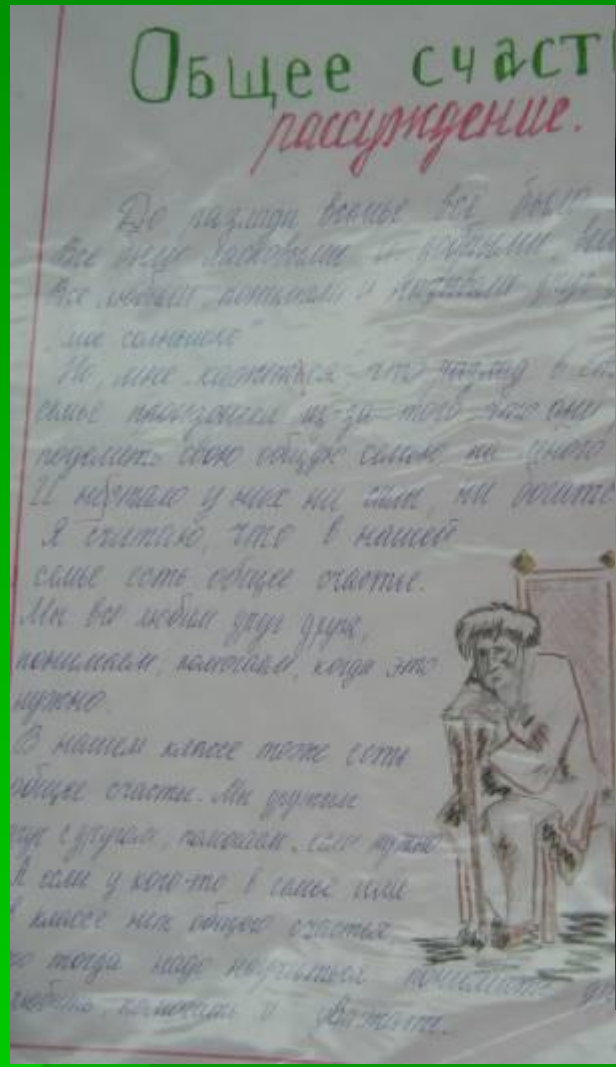 Общее счаст
рассуждение.
До разлада в семье всё было
Все были ласковыми и добрыми
Все любили, понимали и называли друг
"мое солнышко"
Но, мне кажеться, что разлад в
семье произошел из-за того что они
поделить свою общую семью на много
И нестало у них ни силы, ни богатс
Я считаю, что в нашей
семье есть общее счастье.
Мы все любим друг друга,
понимаем, помогаем, когда это
нужно.
В нашем классе тоже есть
общее счастье. Мы дружим
друг с другом, помогаем, если нужно
А если у кого-то в семье или
в классе нет общего счастья
то тогда надо научиться понимать
любить, помогать и уважать.